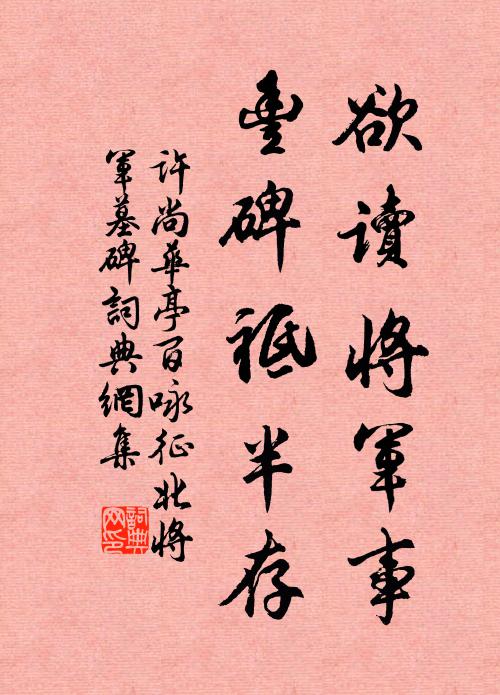 欲讀將軍事
豐碑祗半存
許尚華亭百咏征北將
軍墓碑詞典網集
詞典
网印